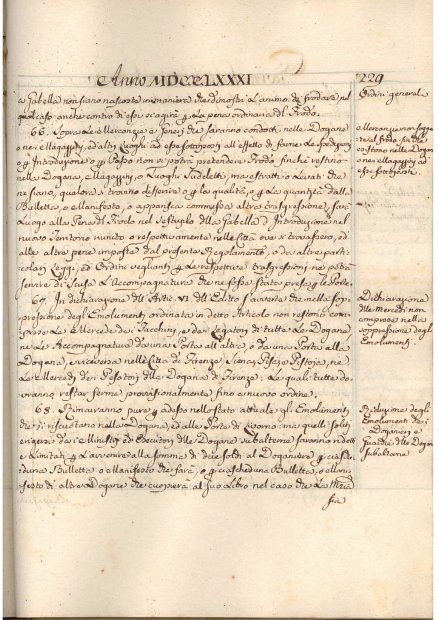 Anno MDCCLXXXI.
229
a Gabella non siano nascoste in maniera che dimostri l'animo di frodare, nel
qual caso anche contro di esse si agirà p. la pena ordinaria del Frodo.
66. Sopra le Mercanzie e Generi che saranno condotti nelle Dogane
o nei Magazzini, ed altri Luoghi ad esse sottoposti all'effetto di farne le spedizioni
p. Introduzione o p. Passo non si potrà pretendere Frodo finchè restino
nelle Dogane, e Magazzini, o Luoghi suddetti, ma estratti o levati che
ne siano, qualora si trovino differire o p. la qualità, o p. la quantità dalla
Bulletta, o Manifesto, o apparisca commessa altra trasgressione, sarà
luogo alla Pena del Frodo nel sestuplo della Gabella d'Introduzione nel
nuovo Territorio riunito o respettivamente nelle Città ove si trovassero, ed
alle altre pene imposte dal presente Regolamento, o da altre parti-
colari Leggi, ed Ordini veglianti p. le respettive trasgressioni, ne potrà
servire di scusa l'Accompagnatura che ne fosse stata presa p. le Porte.
67. In dichiarazione dell'Artic. VI dell'Editto s'avverte che nella sop-
pressione degl'Emolumenti ordinata in detto Articolo non restono com-
prese le Mercedi dei Facchini, e dei Legatori di tutte le Dogane
ne le Accompagnature da una Porta all'altra, o da una Porta alla
Dogana, e viceversa nelle Città di Firenze, Siena, Pisa, e Pistoja, ne
le Mercedi dei Pesatori delle Dogane di Firenze: Le quali tutte do-
vranno restar ferme provisionalmente fino a nuovo ordine.
68. Rimarranno pure p. adesso nello stato attuale gli Emolumenti
che si riscuotano nella Dogana, ed alle Porte di Livorno: ma quelli soliti
esigersi dei Ministri ed Esecutori delle Dogane subalterne saranno ridotti
e limitati p. l'avvenire alla somma di due soldi al Doganiere p. ciasche-
duna Bulletta o Manifesto che farà, o p. ciascheduna Bulletta, o Mani-
festo di altre Dogane che copierà al suo Libro nel caso che la Merca
sia
Ordini generali
Mercanzie non sogget-
te al frodo, finche
esistono nelle Dogane
o nei Magazzini ad
esse sottoposti.
Dichiarazione
delle Mercedi non
comprese nella
soppressione degli
Emolumenti.
Riduzione degl'
Emolumenti dei
Doganieri, e
Guardie delle Dogane
subalterne